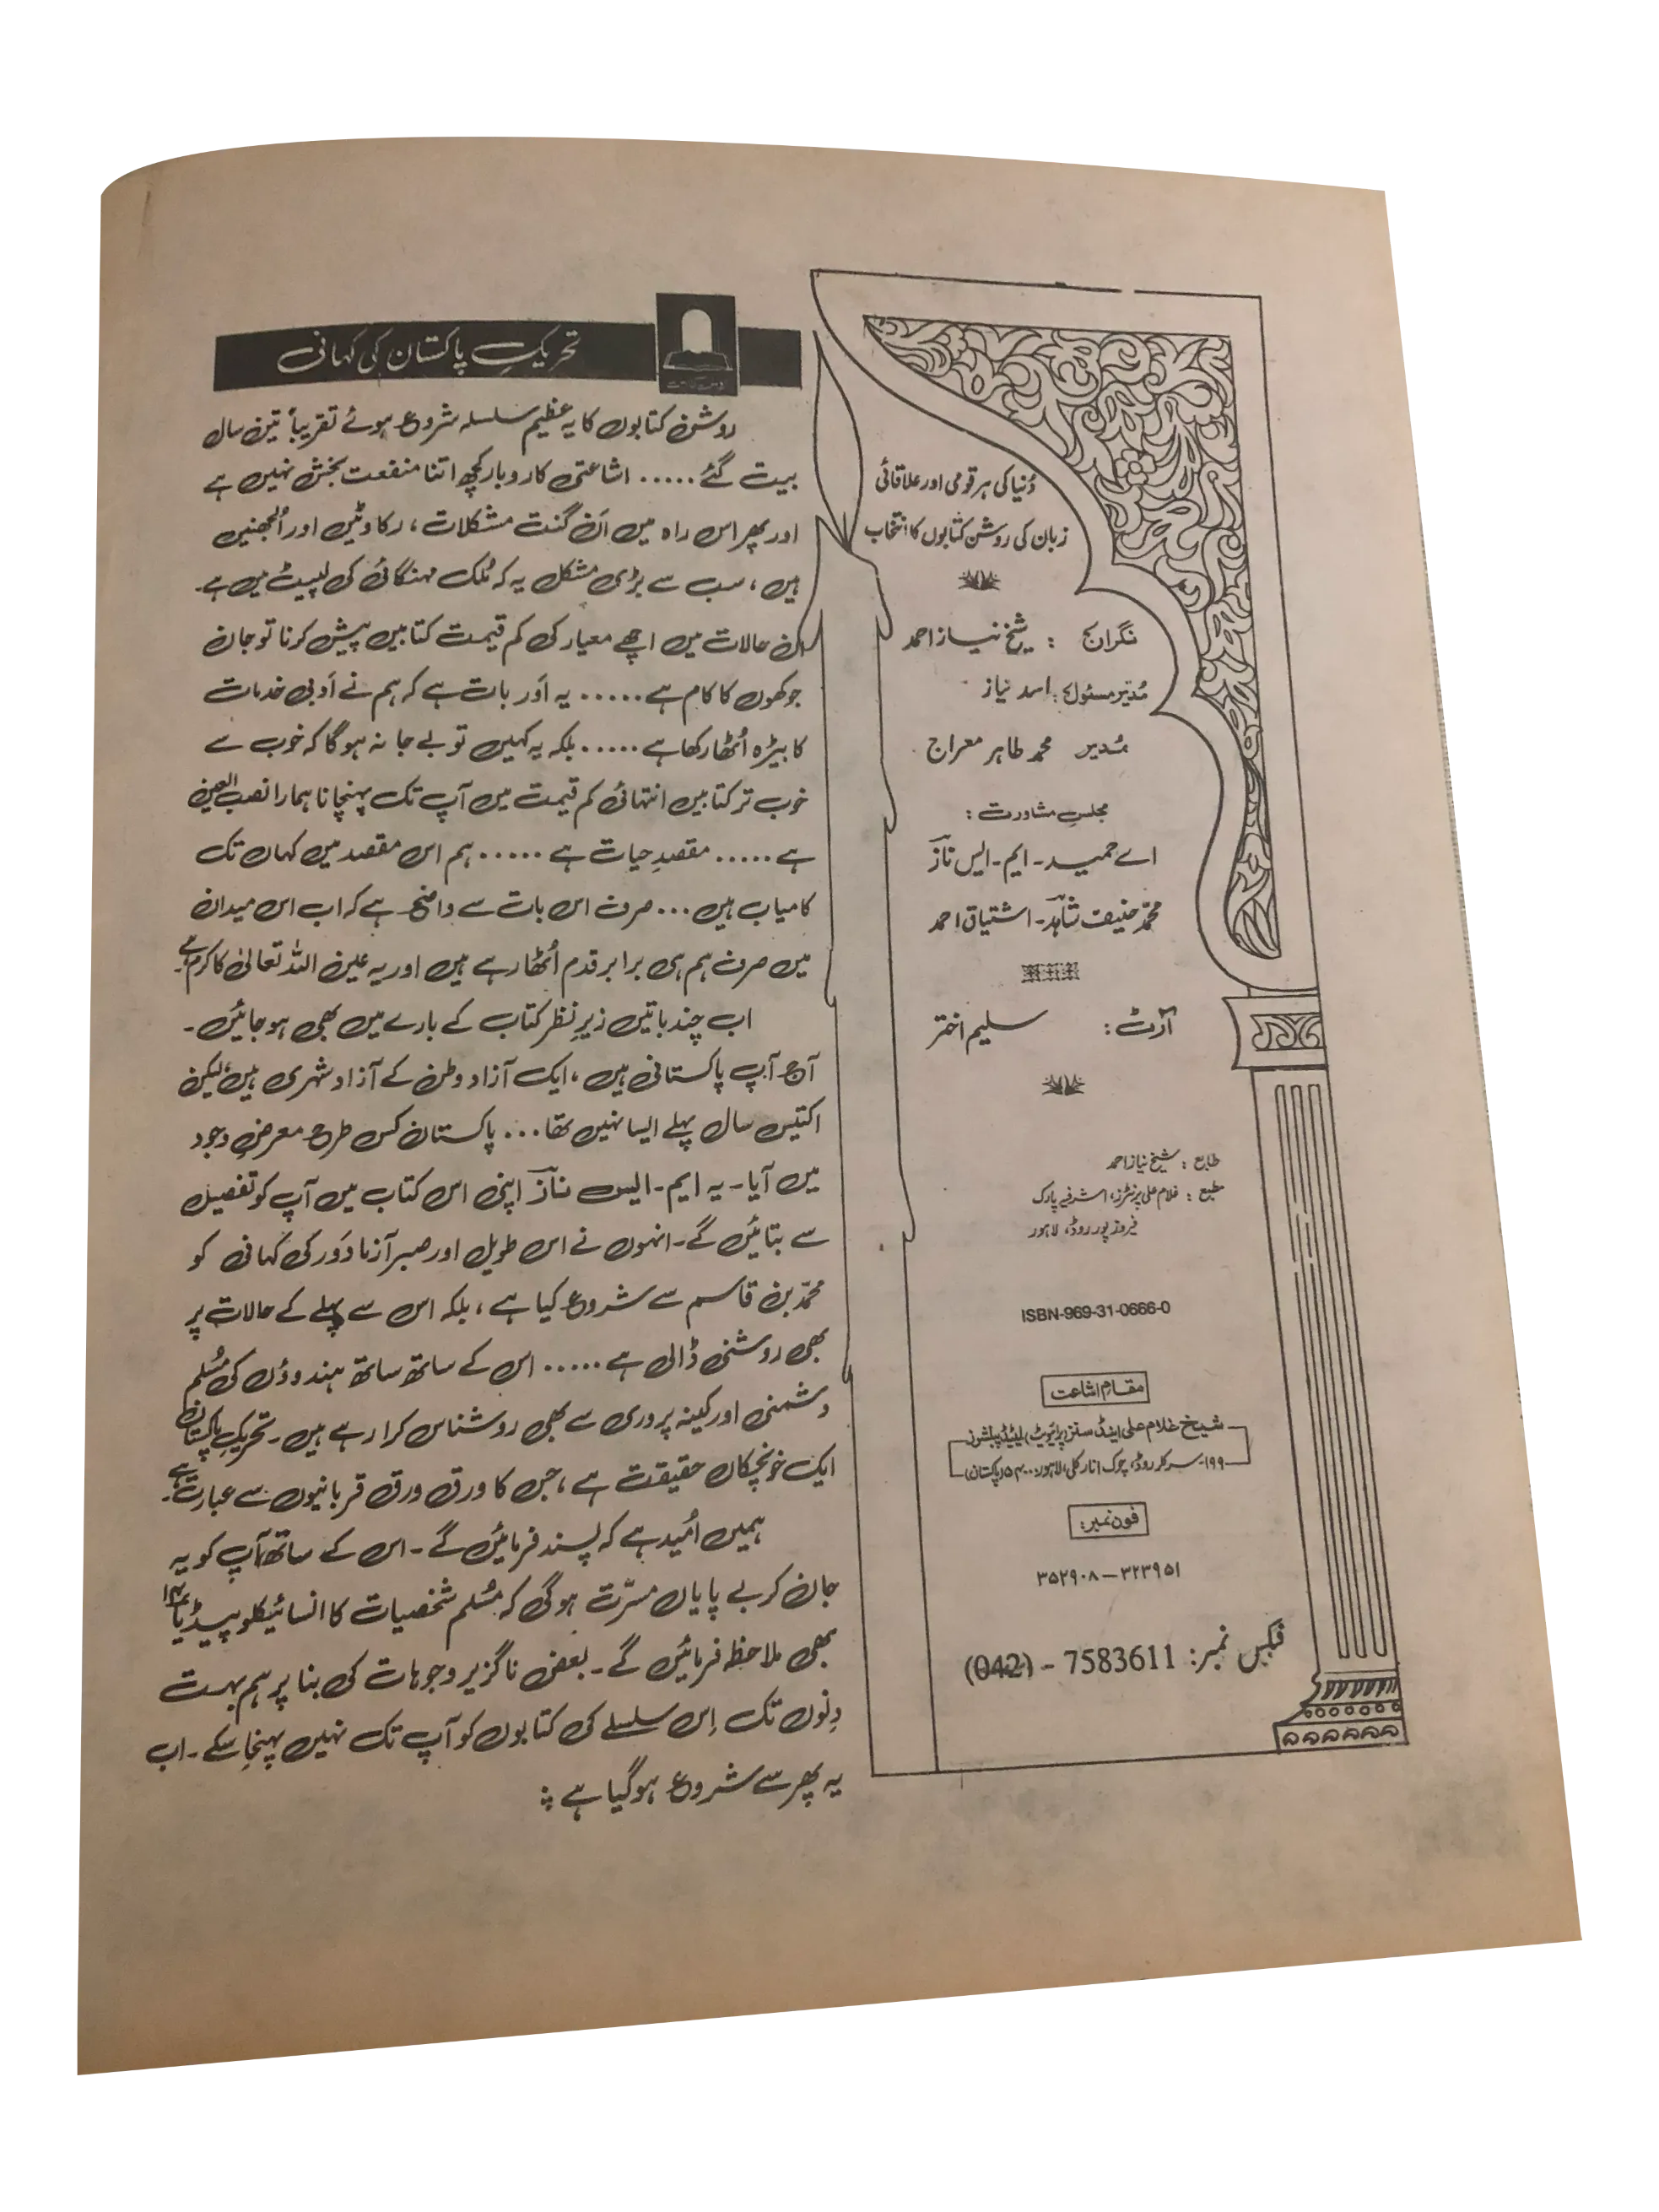 دُنیا کی ہر قومی اور علاقائی
زبان کی روشن کتابوں کا انتخاب
نگران : شیخ نیاز احمد
مُدیر مسئول : اسد نیاز
مُدیر محمد طاہر معراج
مجلسِ مشاورت :
اے حمید - ایم - ایس نازؔ
محمّد حنیف شاہدؔ - اشتیاق احمد
آرٹ : سلیم اختر
طابع : شیخ نیاز احمد
مطبع : غلام علی پرنٹرز، اشرفیہ پارک
فیروز پور روڈ، لاہور
ISBN-969-31-0666-0
مقامِ اشاعت
شیخ غلام علی اینڈ سنز (پرائیویٹ) لیٹڈ پبلشرز
۱۹۹- سرکلر روڈ، چوک انار کلی، لاہور: ۵۴۰۰۰ (پاکستان)
فون نمبر:
۳۵۲۹۰۸ — ۳۲۳۹۵۱
فیکس نمبر: 7583611 - (042)
تحریکِ پاکستان کی کہانی
روشن کتابوں کا یہ عظیم سلسلہ شروع ہوئے تقریباً تین سال
بیت گئے ..... اشاعتی کاروبار کچھ اتنا منفعت بخش نہیں ہے
اور پھر اس راہ میں اَن گنت مشکلات ، رکاوٹیں اور اُلجھنیں
ہیں ، سب سے بڑی مشکل یہ کہ مُلک مہنگائی کی لپیٹ میں ہے۔
ان حالات میں اچھے معیار کی کم قیمت کتابیں پیش کرنا تو جان
جوکھوں کا کام ہے ..... یہ اَور بات ہے کہ ہم نے اَدبی خدمات
کا بیڑہ اُٹھا رکھا ہے ..... بلکہ یہ کہیں تو بے جا نہ ہوگا کہ خوب سے
خوب تر کتابیں انتہائی کم قیمت میں آپ تک پہنچانا ہمارا نصب العین
ہے ..... مقصدِ حیات ہے ..... ہم اس مقصد میں کہاں تک
کامیاب ہیں ... صرف اس بات سے واضح ہے کہ اب اس میدان
میں صرف ہم ہی برابر قدم اُٹھا رہے ہیں اور یہ عین اللہ تعالیٰ کا کرم ہے۔
اب چند باتیں زیرِ نظر کتاب کے بارے میں بھی ہو جائیں۔
آج آپ پاکستانی ہیں ، ایک آزاد وطن کے آزاد شہری ہیں، لیکن
اکتیس سال پہلے ایسا نہیں تھا ... پاکستان کس طرح معرضِ وجود
میں آیا۔ یہ ایم۔ایس نازؔ اپنی اس کتاب میں آپ کو تفصیل
سے بتائیں گے۔ انہوں نے اس طویل اور صبر آزما دَور کی کہانی کو
محمّد بن قاسم سے شروع کیا ہے ، بلکہ اس سے پہلے کے حالات پر
بھی روشنی ڈالی ہے ..... اس کے ساتھ ساتھ ہندوؤں کی مُسلم
دشمنی اور کینہ پروری سے بھی روشناس کرا رہے ہیں۔ تحریکِ پاکستان
ایک خونچکاں حقیقت ہے ، جس کا ورق ورق قربانیوں سے عبارت ہے۔
ہمیں اُمید ہے کہ پسند فرمائیں گے۔ اس کے ساتھ آپ کو یہ
جان کر بے پایاں مسرّت ہوگی کہ مُسلم شخصیات کا انسائیکلوپیڈیا
بھی ملاحظہ فرمائیں گے۔ بعض ناگزیر وجوہات کی بنا پر ہم بہت
دِنوں تک اِس سلسلے کی کتابوں کو آپ تک نہیں پہنچا سکے۔ اب
یہ پھر سے شروع ہوگیا ہے :